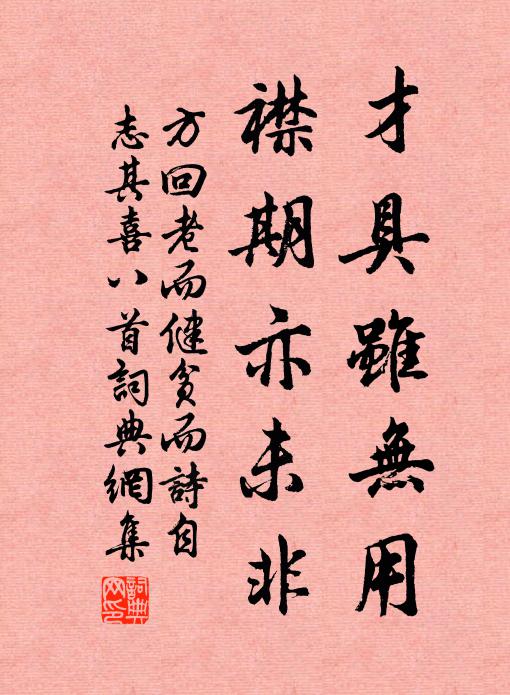 才具雖無用
襟期亦未非
方回老而健貧而詩自
志其喜八首詞典網集
詞典網印